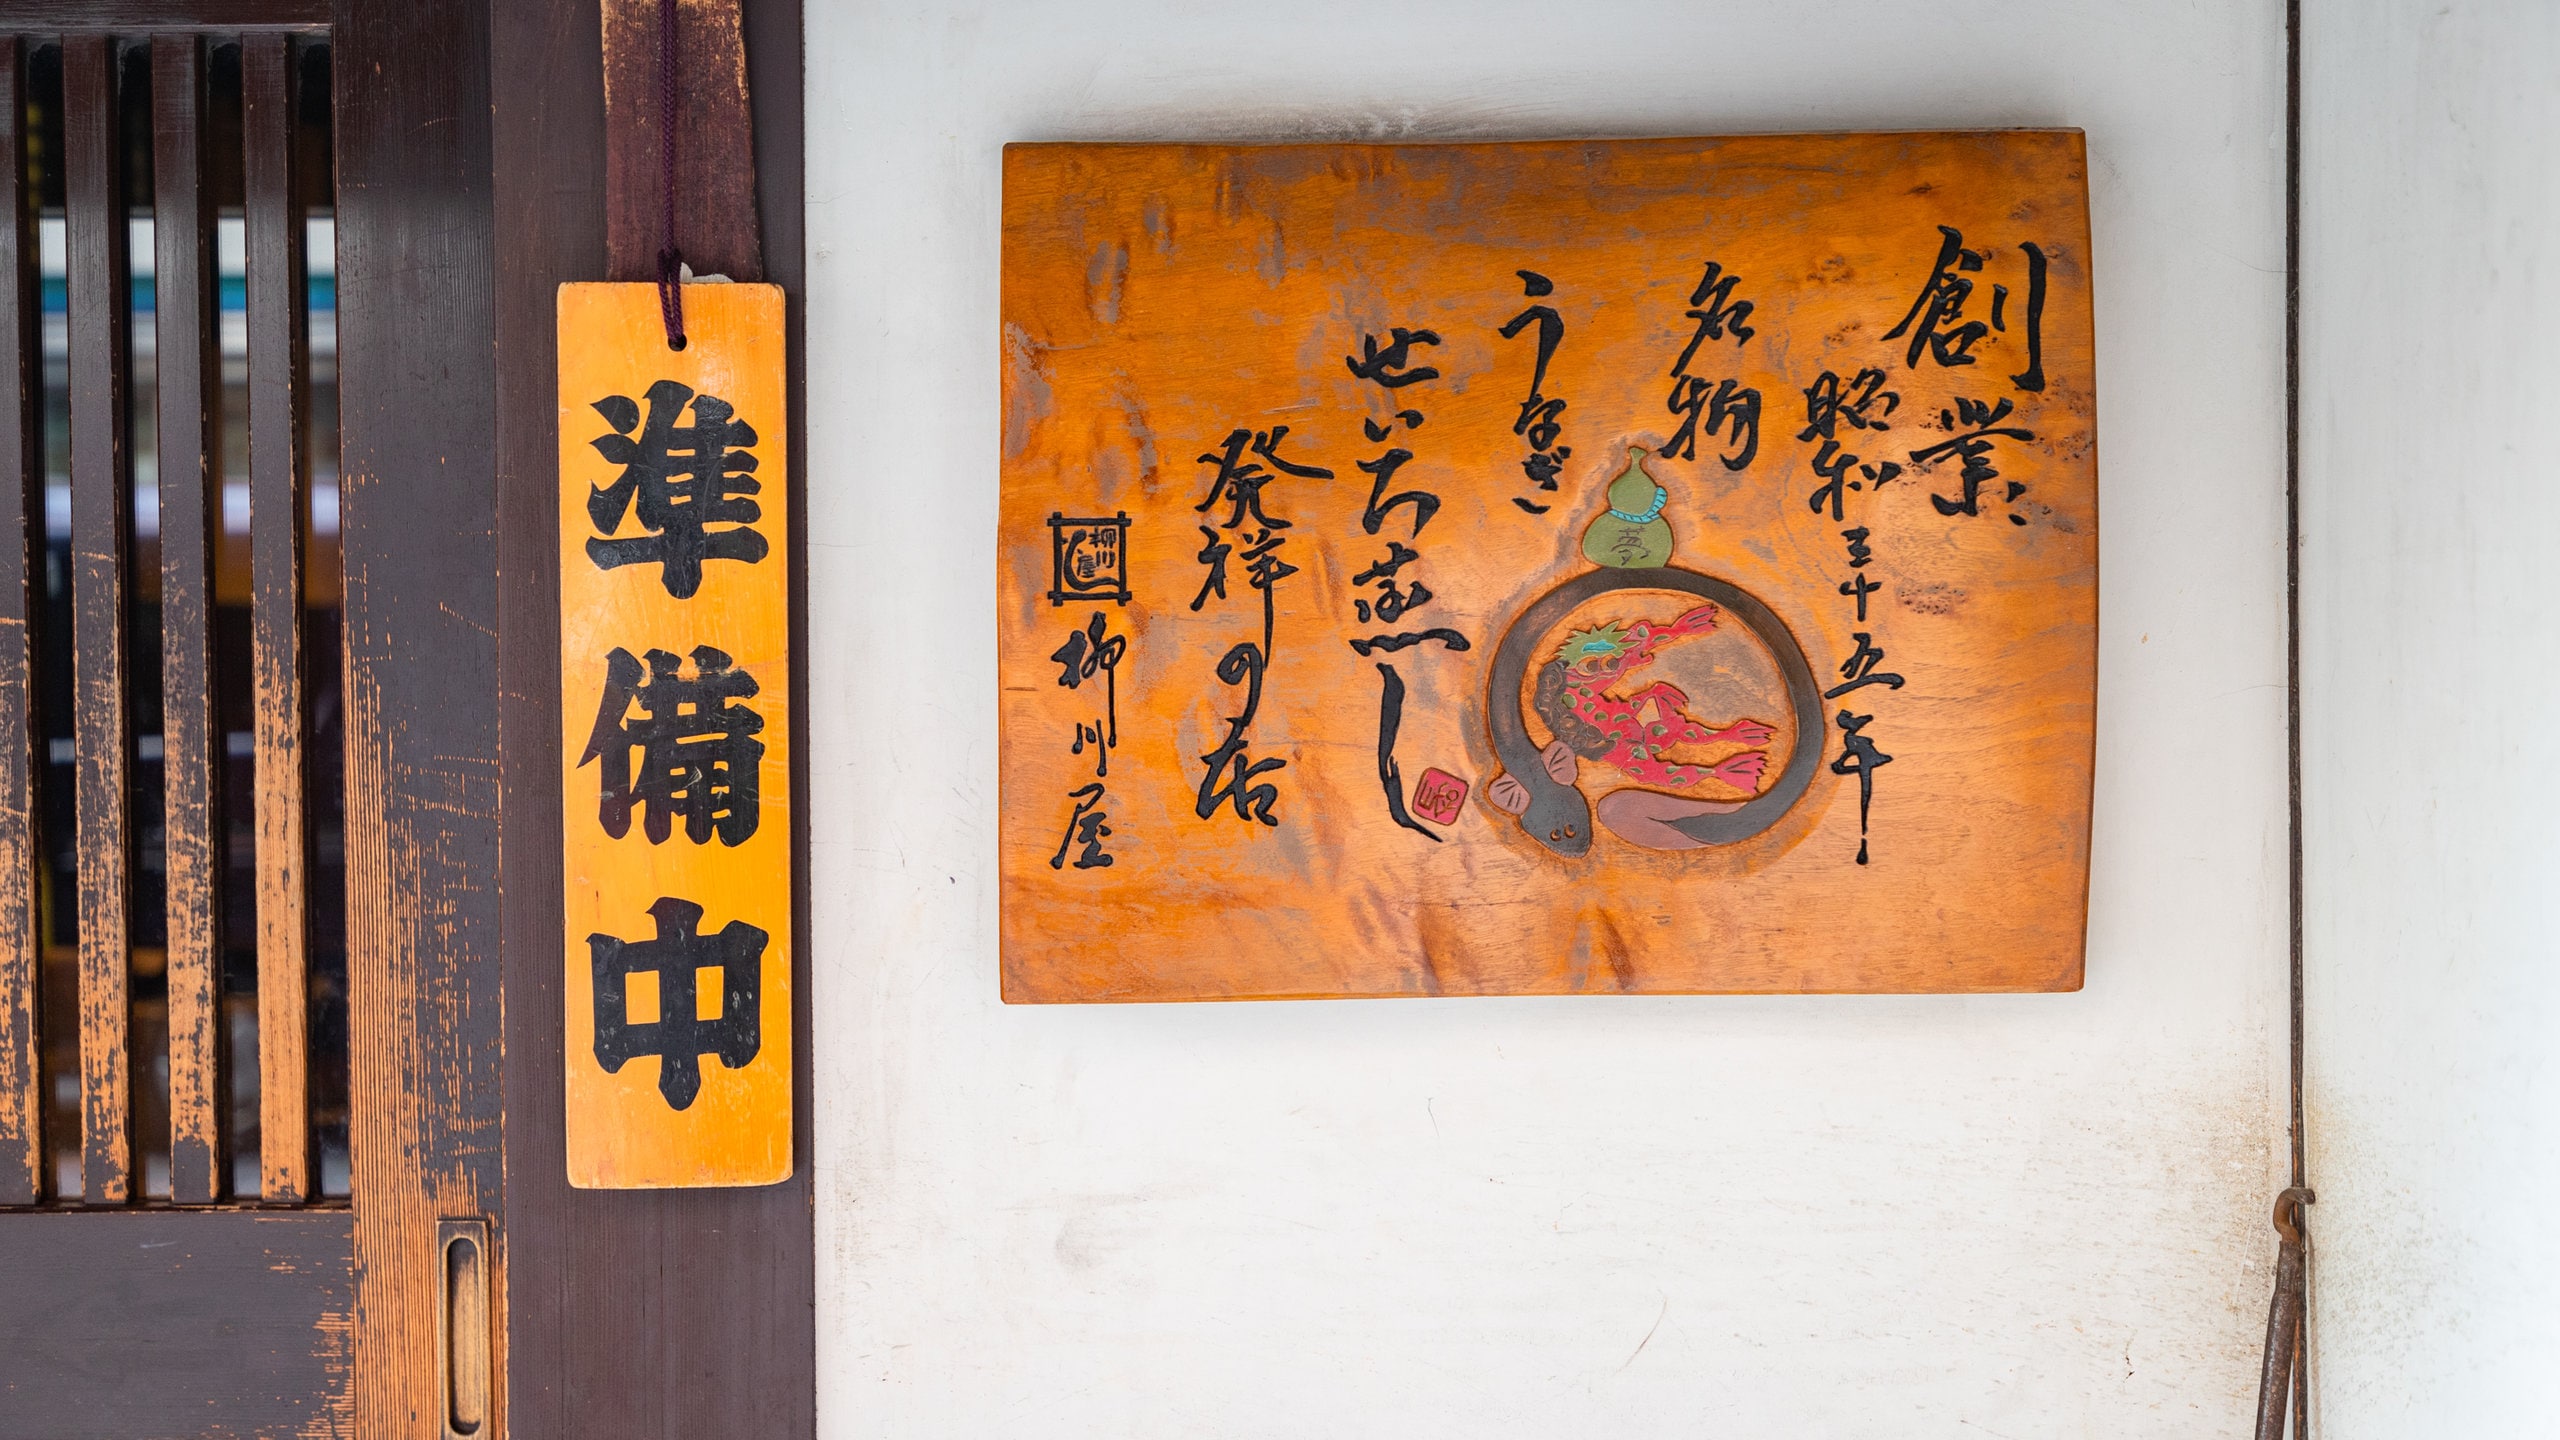 準備中
創業
昭和三十五年
名物
うなぎ
せいろ蒸し
発祥の店
柳川屋
柳川屋
夢